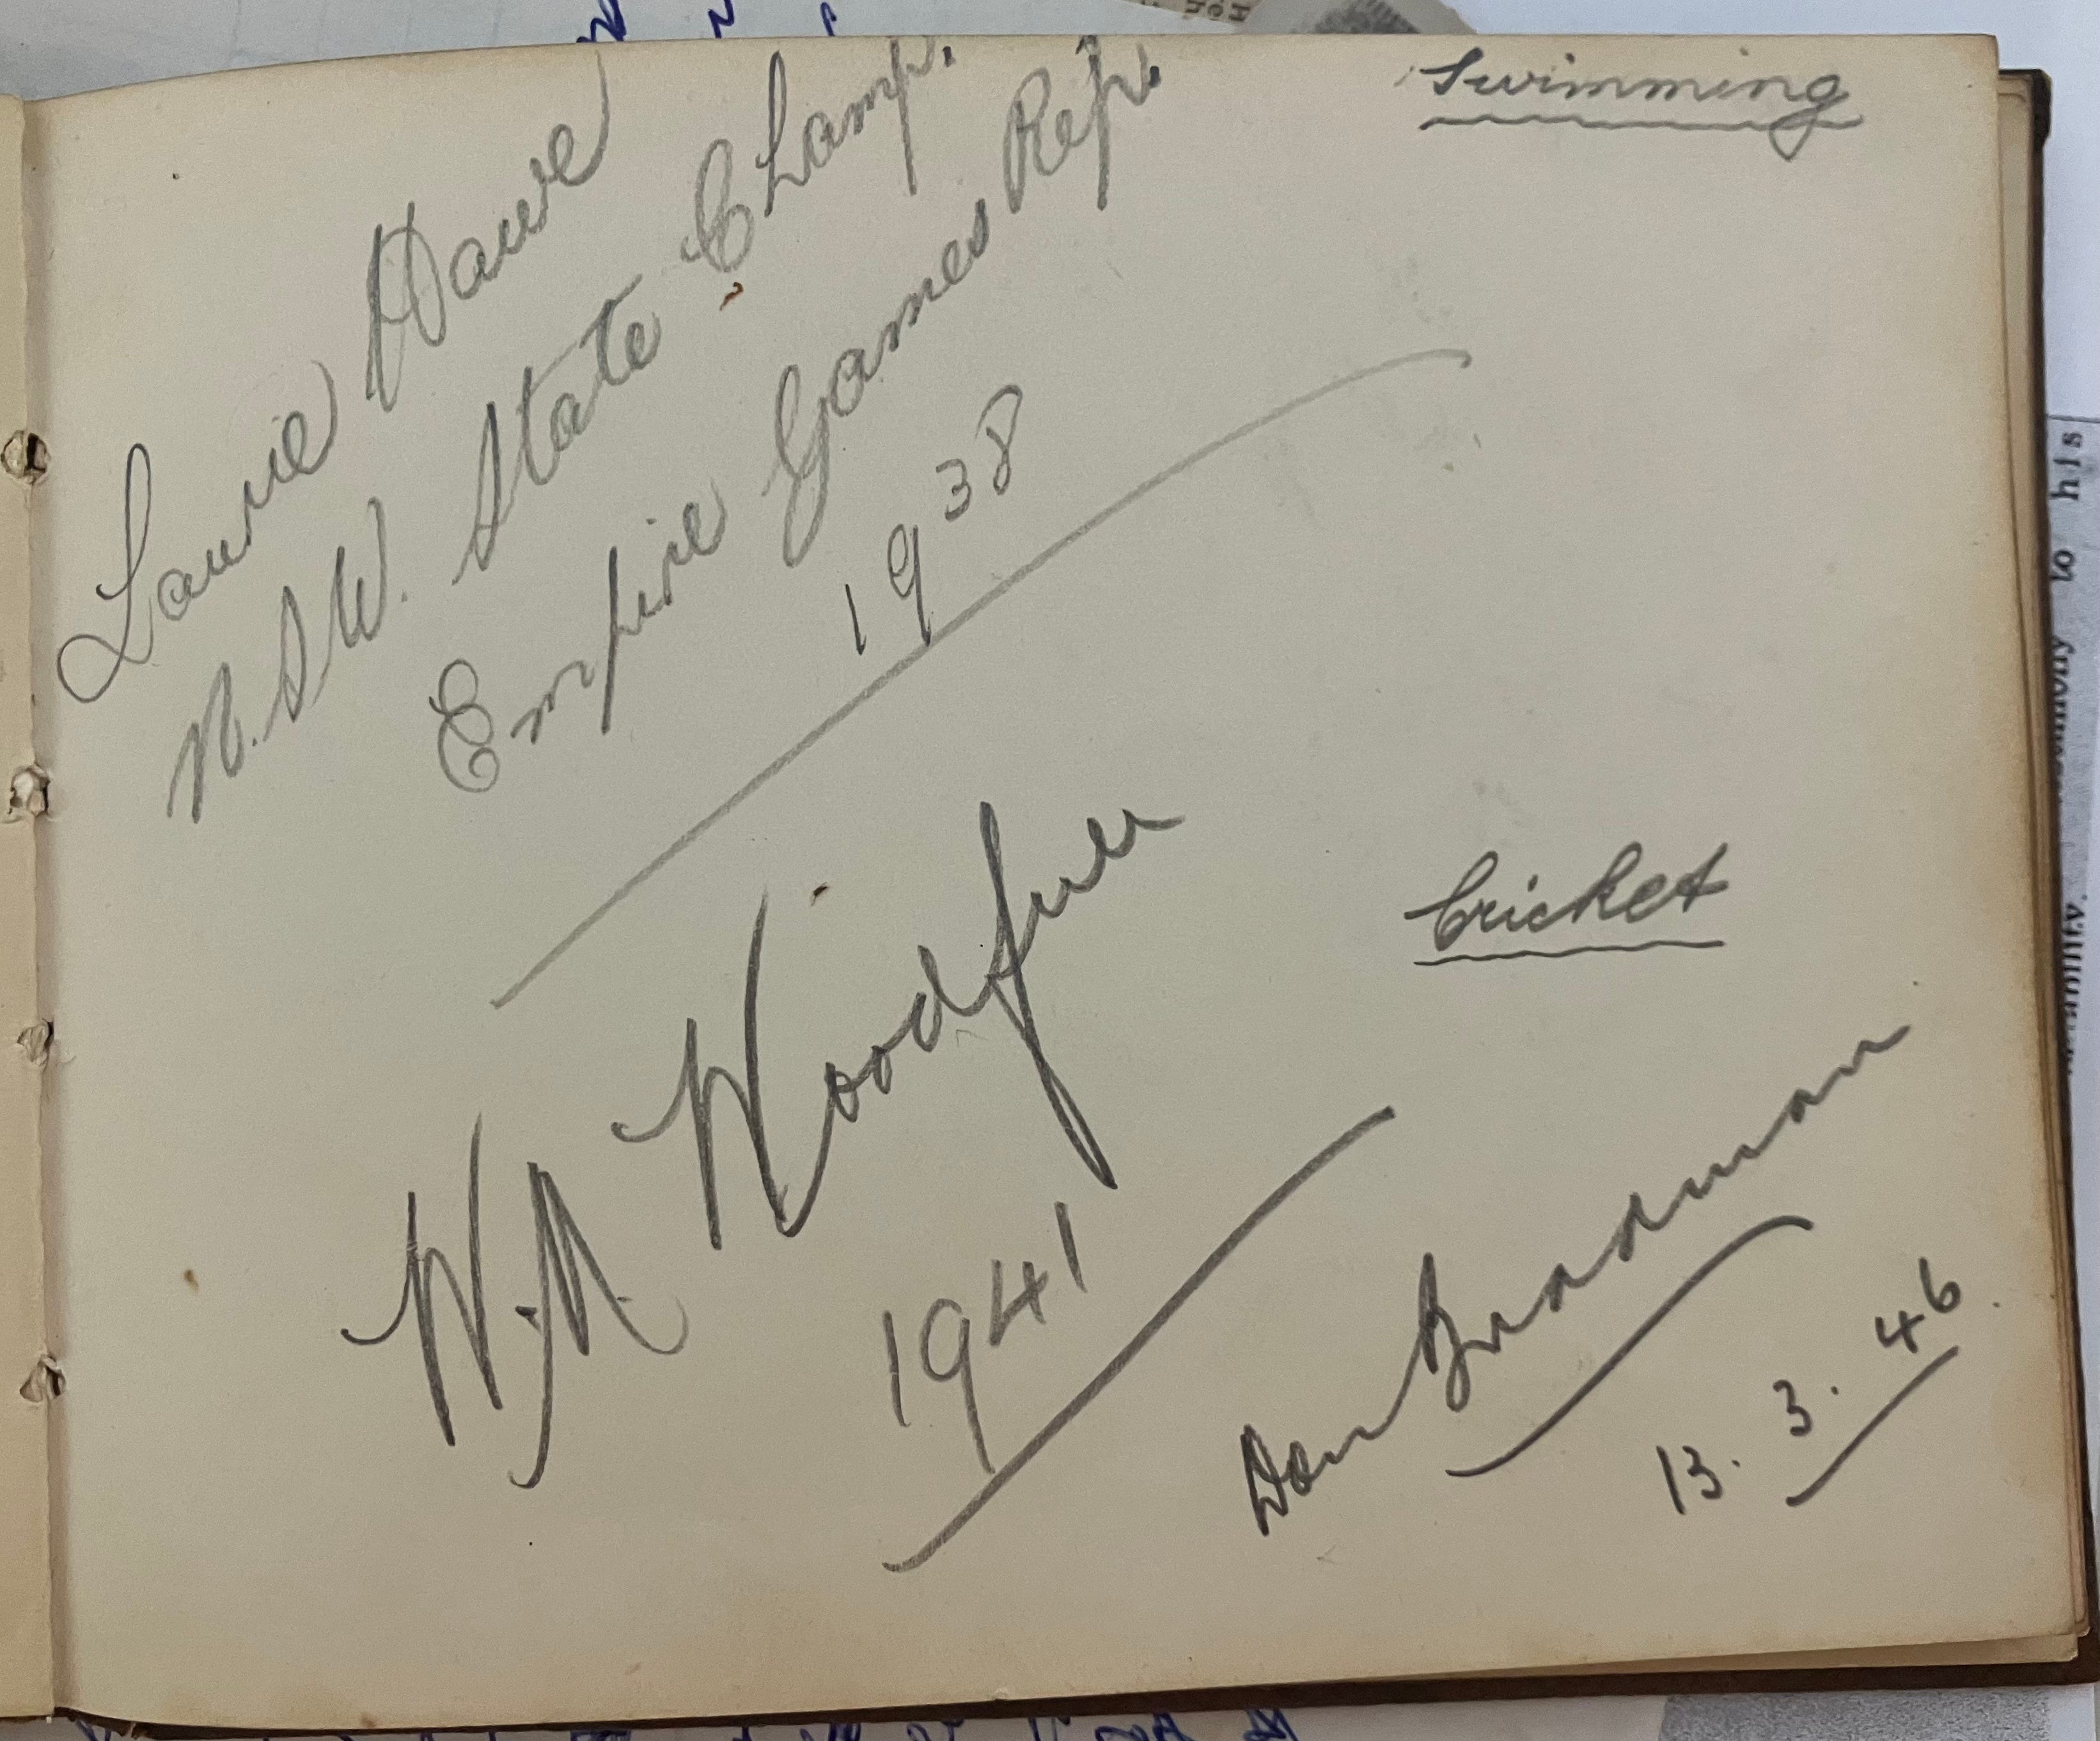 Swimming
Laurie Dawe
N.S.W. State Champ.
Empire Games Rep.
1938
Cricket
W.M. Woodfull
1941
Don Bradman
13.3.46
to his